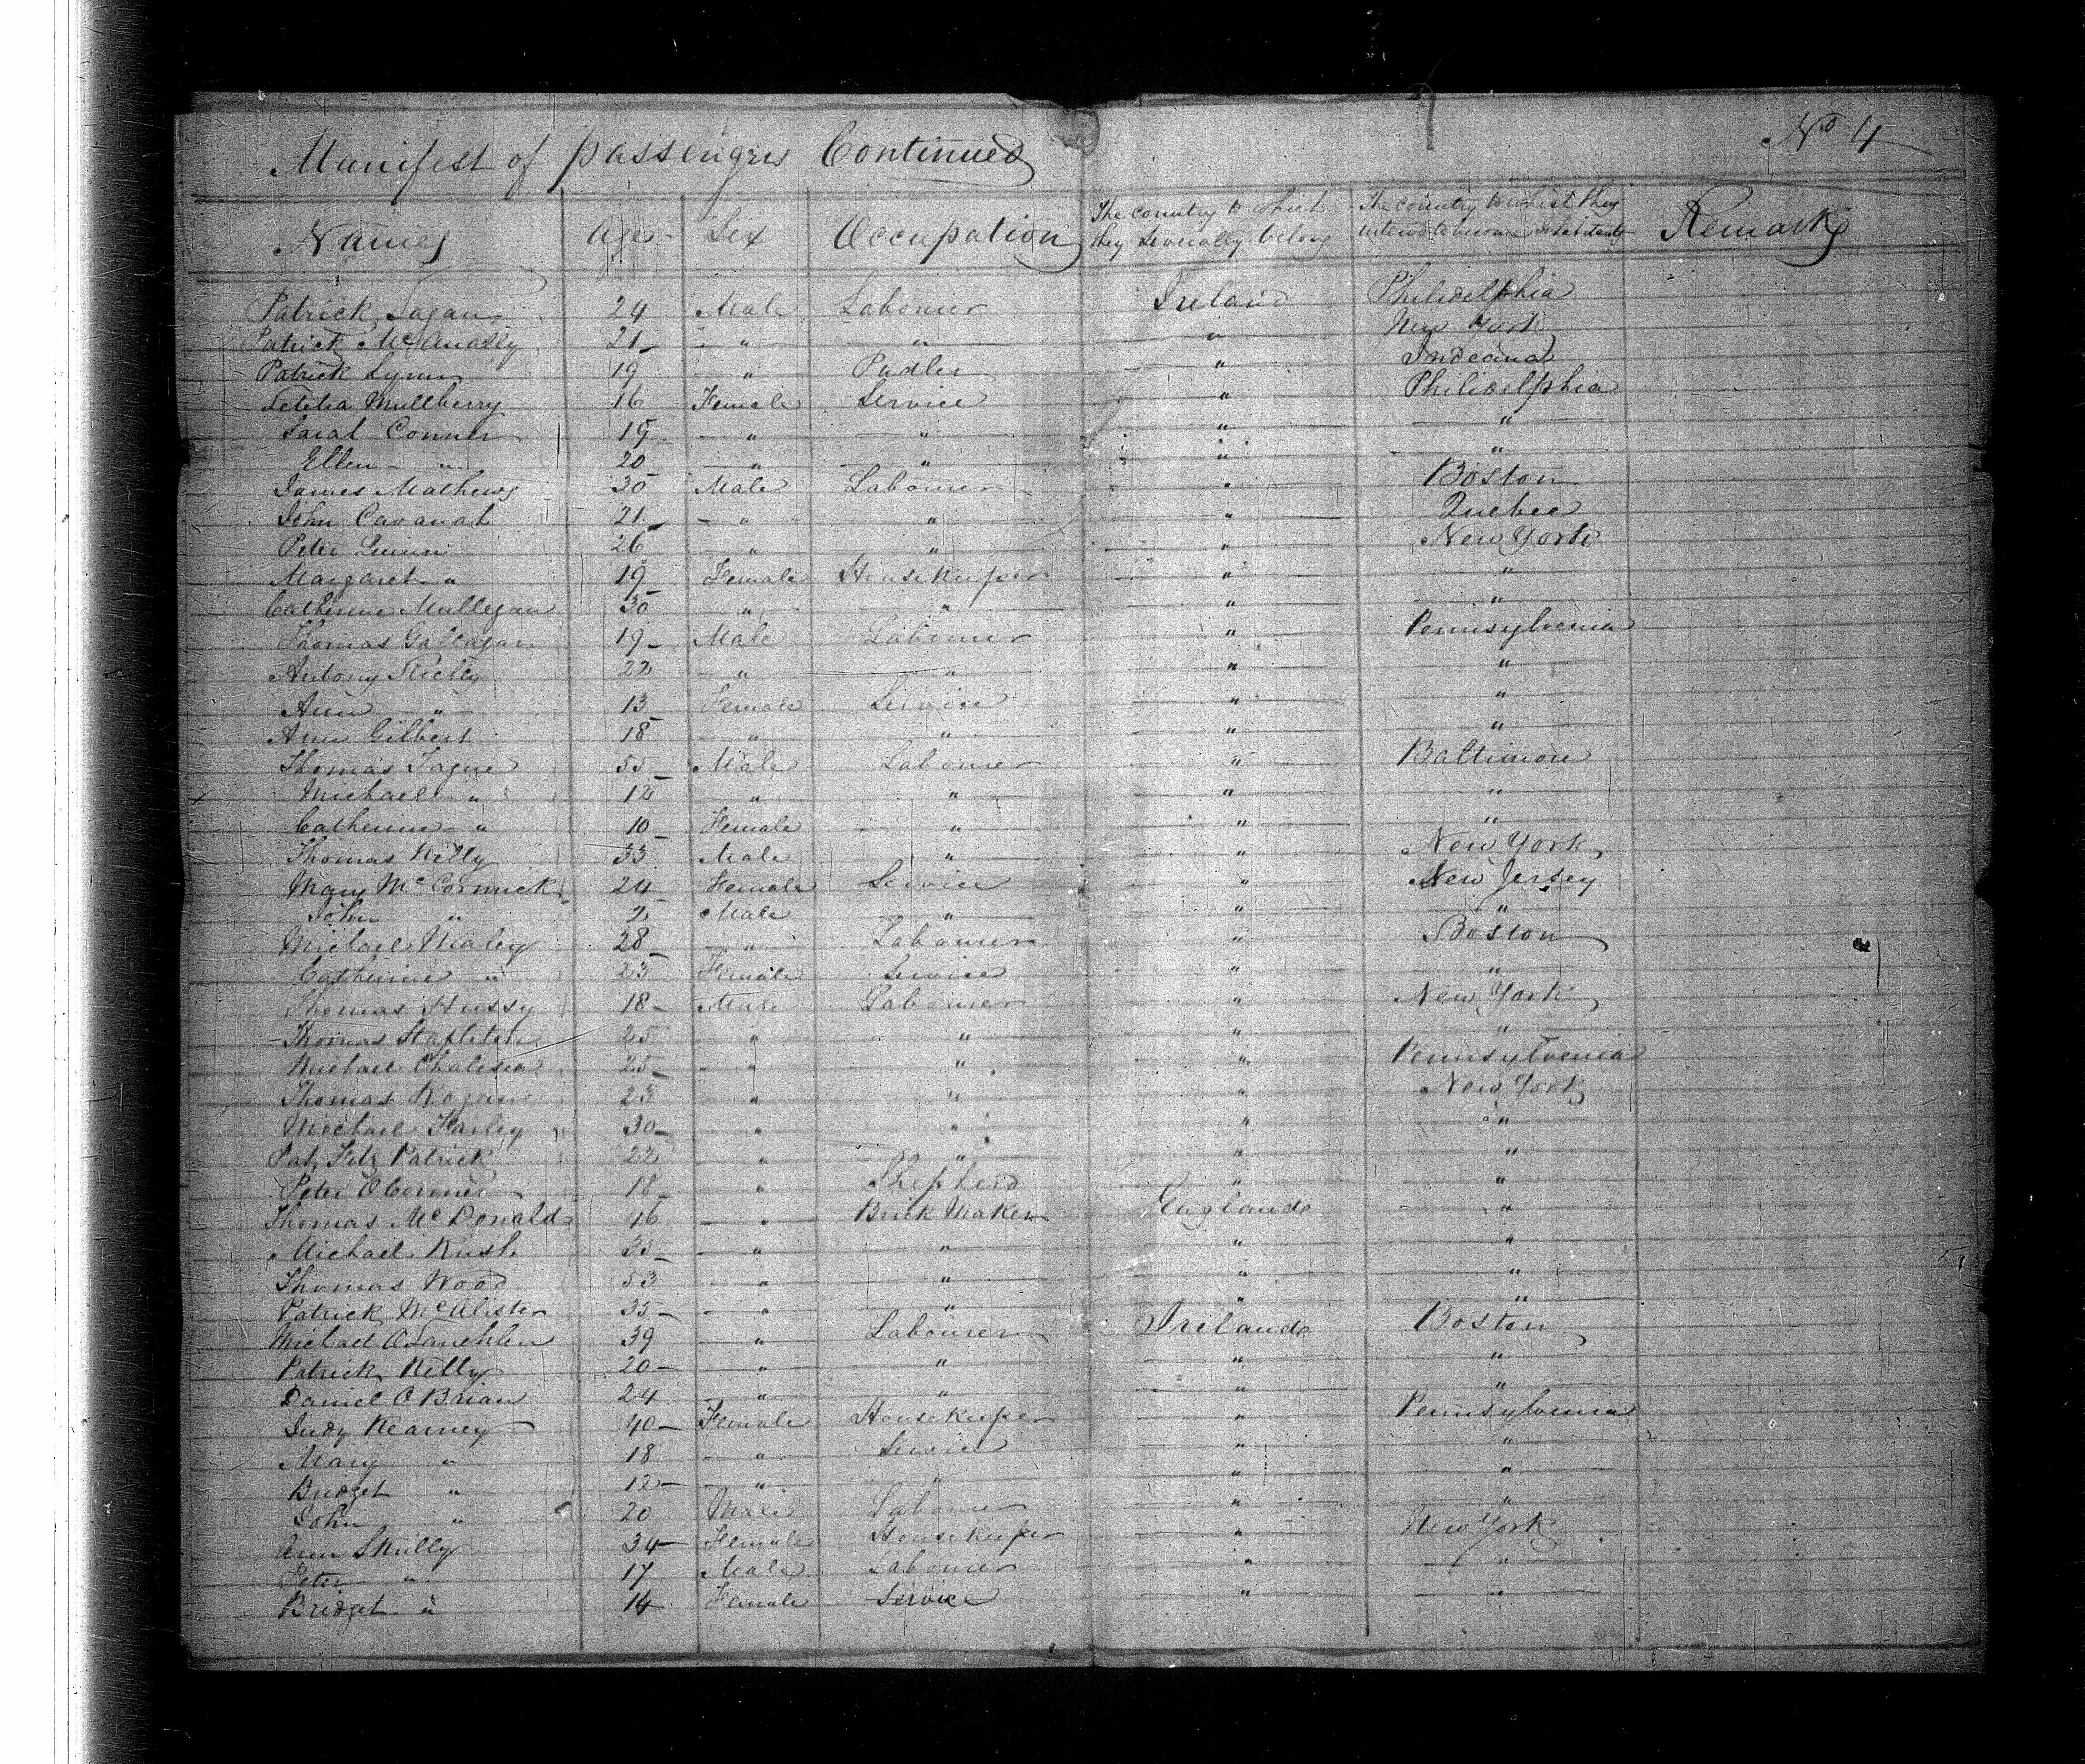 Manifest of passengrs Continued
No 4
Names Age Sex Occupation The country to which they severally belong The country to which they intend to become Inhabitants Remarks
Patrick Lagan 24 Male Labourer Ireland Philidelphia
Patrick McAnally 21 " " " New York
Patrick Lynn 19 " Pudler " Indeana
Letitia Mullberry 16 Female Service " Philidelphia
Sarah Conner 19 " " " "
Ellen " 20 " " " "
James Mathews 30 Male Labourer " Boston
John Cavanah 21 " " " Quebec
Peter Quinn 26 " " " New York
Margaret " 19 Female Housekeeper " "
Catherine Mullegan 30 " " " "
Thomas Gallagan 19 Male Labourer " Pennsylvenia
Antony Rielly 22 " " " "
Ann " 13 Female Service " "
Ann Gilbert 18 " " " "
Thomas Tague 55 Male Labourer " Baltimore
Michael " 12 " " " "
Catherine " 10 Female " " "
Thomas Kelly 33 Male " " New York
Mary Mc Cormick 24 Female Service " New Jersey
John " 2 Male " " "
Michael Maley 28 " Labourer " Boston
Catherine " 23 Female Service " "
Thomas Hussy 18 Male Labourer " New York
Thomas Stapleton 25 " " " "
Michael 25 " " " Pennsylvenia
Thomas Rogan 23 " " " New York
Michael Farley 30 " " " "
Pat Fitz Patrick 22 " " " "
Peter OConner 18 " Shepherd " "
Thomas Mc Donald 46 " Brick Maker England "
Michael Rush 35 " " " "
Thomas Wood 53 " " " "
Patrick McAlister 35 " " " "
Michael OLauchlen 39 " Labourer Ireland Boston
Patrick Kelly 20 " " " "
Daniel O Brian 24 " " " "
Judy Kearney 40 Female Housekeeper " Pennsylvenia
Mary " 18 " Service " "
Bridget " 12 " " " "
John " 20 Male Labourer " "
Ann Skully 34 Female Housekeeper " New York
Peter " 17 Male Labourer " "
Bridget " 14 Female Service " "